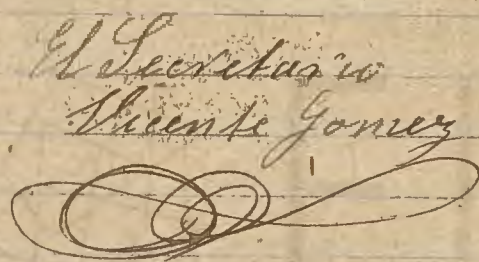 El Secretario
Vicente Gomez